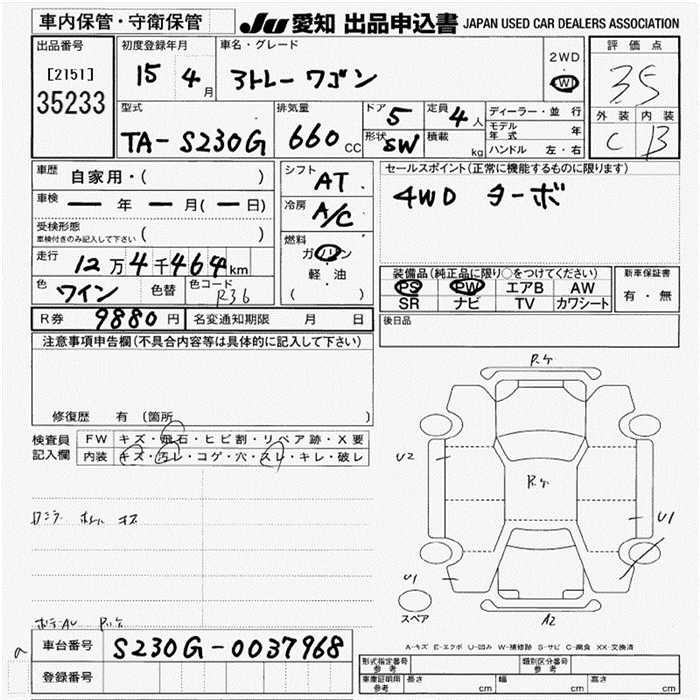 車内保管・守衛保管
JU 愛知 出品申込書 JAPAN USED CAR DEALERS ASSOCIATION
出品番号
[2151]
35233
初度登録年月
15 4月
車名・グレード
ストレーワゴン
2WD
・
4WD
評価点
3.5
外装 内装
C B
型式
TA-S230G
排気量
660cc
ドア 5
形状 SW
定員 4人
積載 kg
ディーラー・並行
モデル年式 年
ハンドル 左・右
車歴 自家用・( )
車検 ー年ー月(ー日)
受検形態
車検付きのみ記入して下さい ( )
走行 12万4千464km
色 ワイン 色替 色コード R36
シフト AT
冷房 A/C
燃料
ガソリン
軽・油
( )
セールスポイント(正常に機能するものに限ります)
4WD ターボ
装備品(純正品に限り○をつけてください)
PS PW エアB AW
SR ナビ TV カワシート
新車保証書
有・無
R券 9880円 名変通知期限 月 日
後日品
注意事項申告欄(不具合内容等は具体的に記入して下さい)
修復歴 有(箇所 )
検査員記入欄
FW キズ・飛石・ヒビ割・リペア跡・X要
内装 キズ・汚レ・コゲ・穴・スレ・キレ・破レ
R.ケ
U2
R.ケ
U1
U1
スペア
A2
A-キズ E-エクボ U-凹み W-補修跡 S-サビ C-腐食 XX-交換済
車台番号 S230G-0037968
登録番号
形式指定番号 参考
類別区分番号 参考
車庫証明用 参考 長さ cm 幅 cm 高さ cm